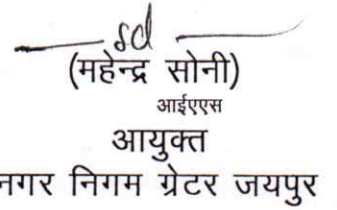 sd
(महेन्द्र सोनी)
आईएएस
आयुक्त
नगर निगम ग्रेटर जयपुर